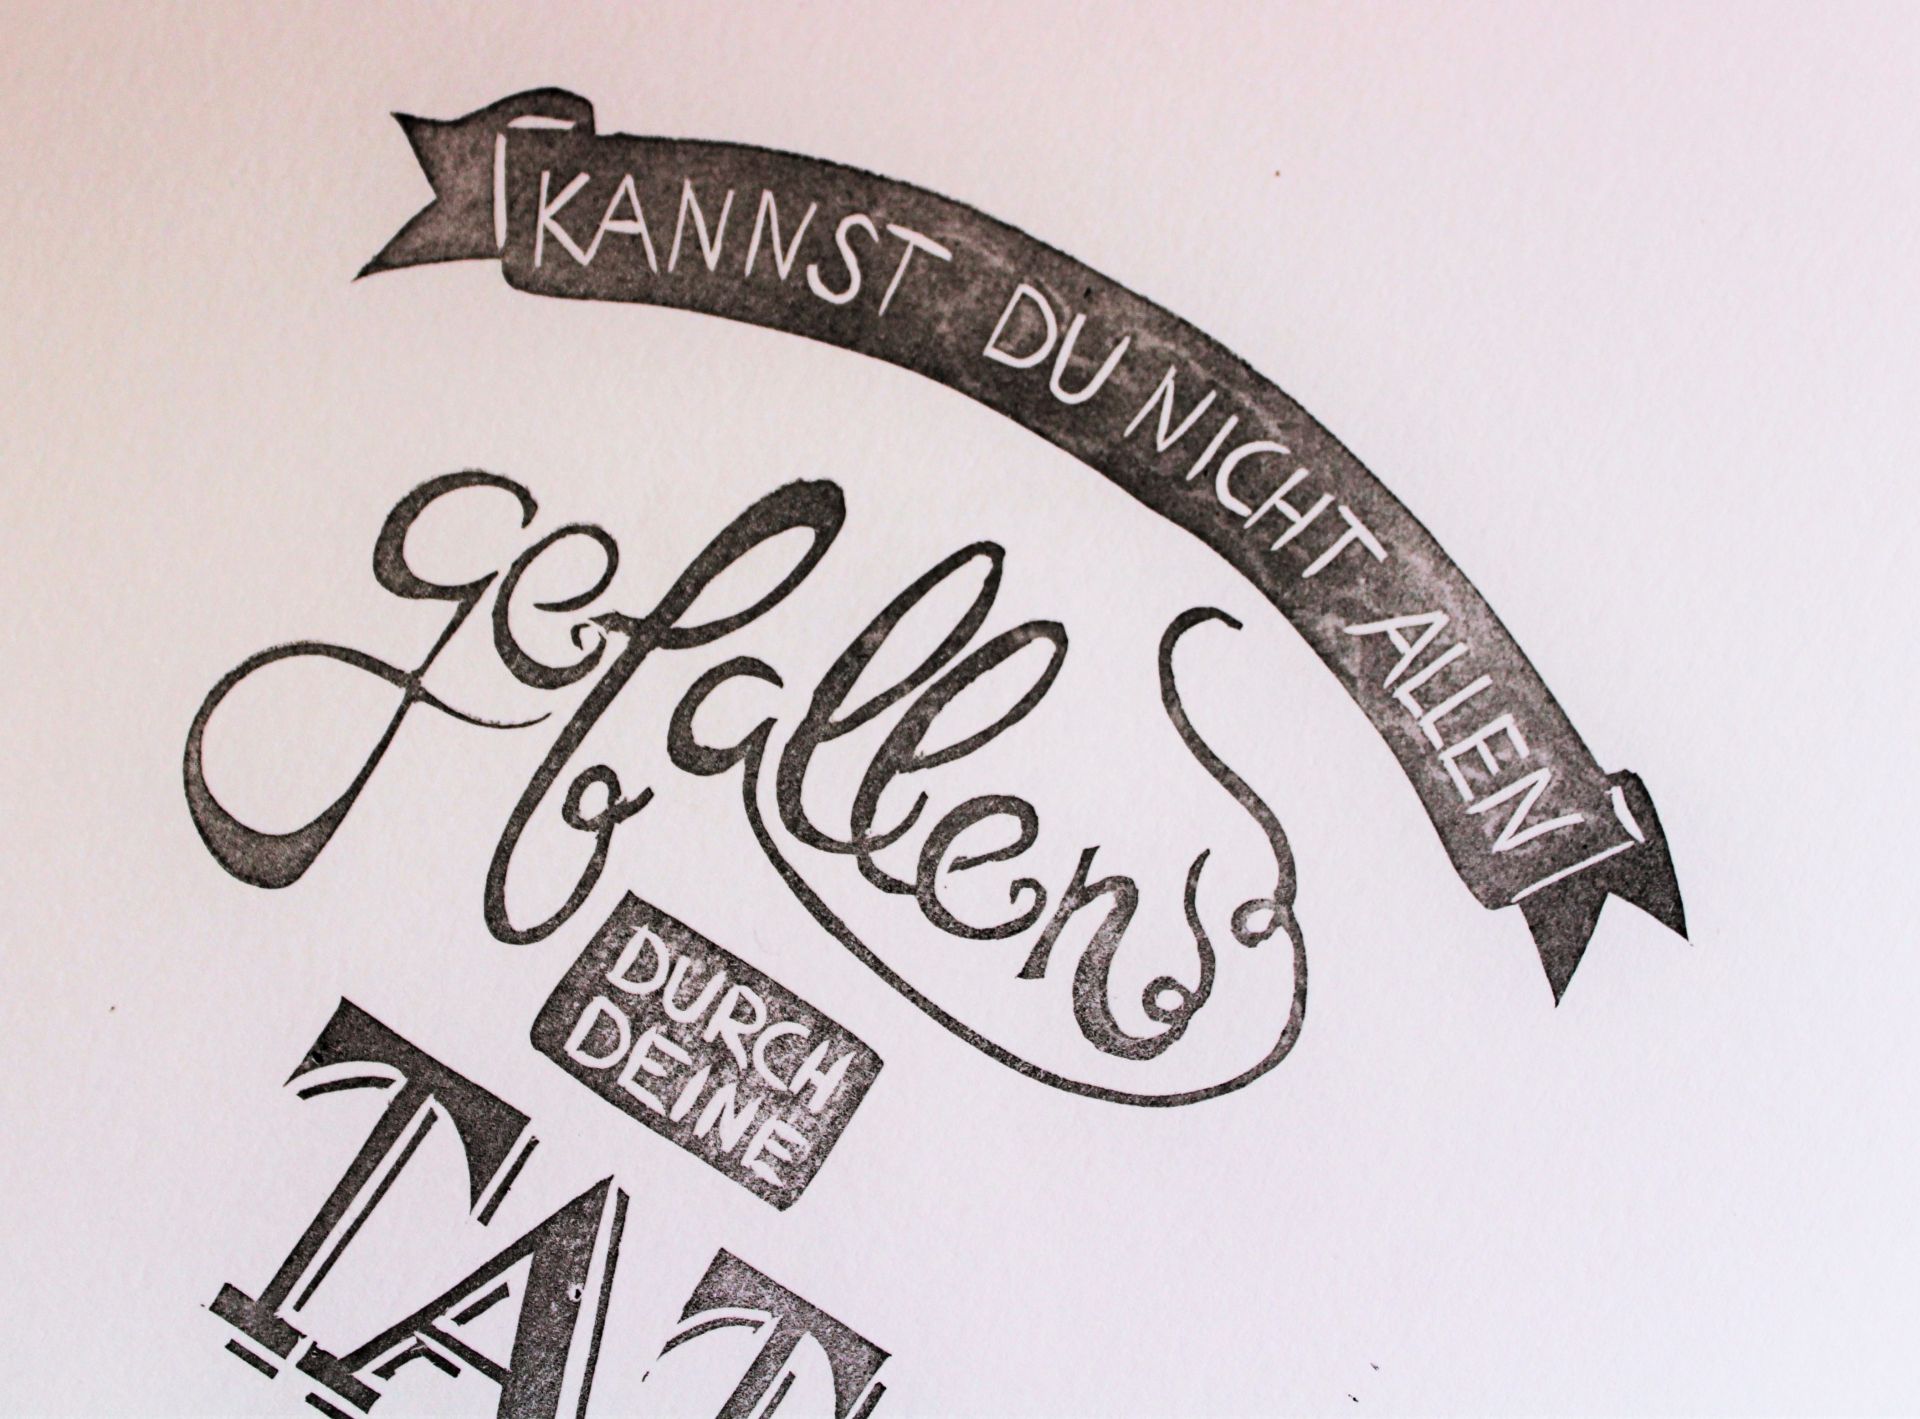 KANNST DU NICHT ALLEN
gefallen
DURCH
DEINE
TAT